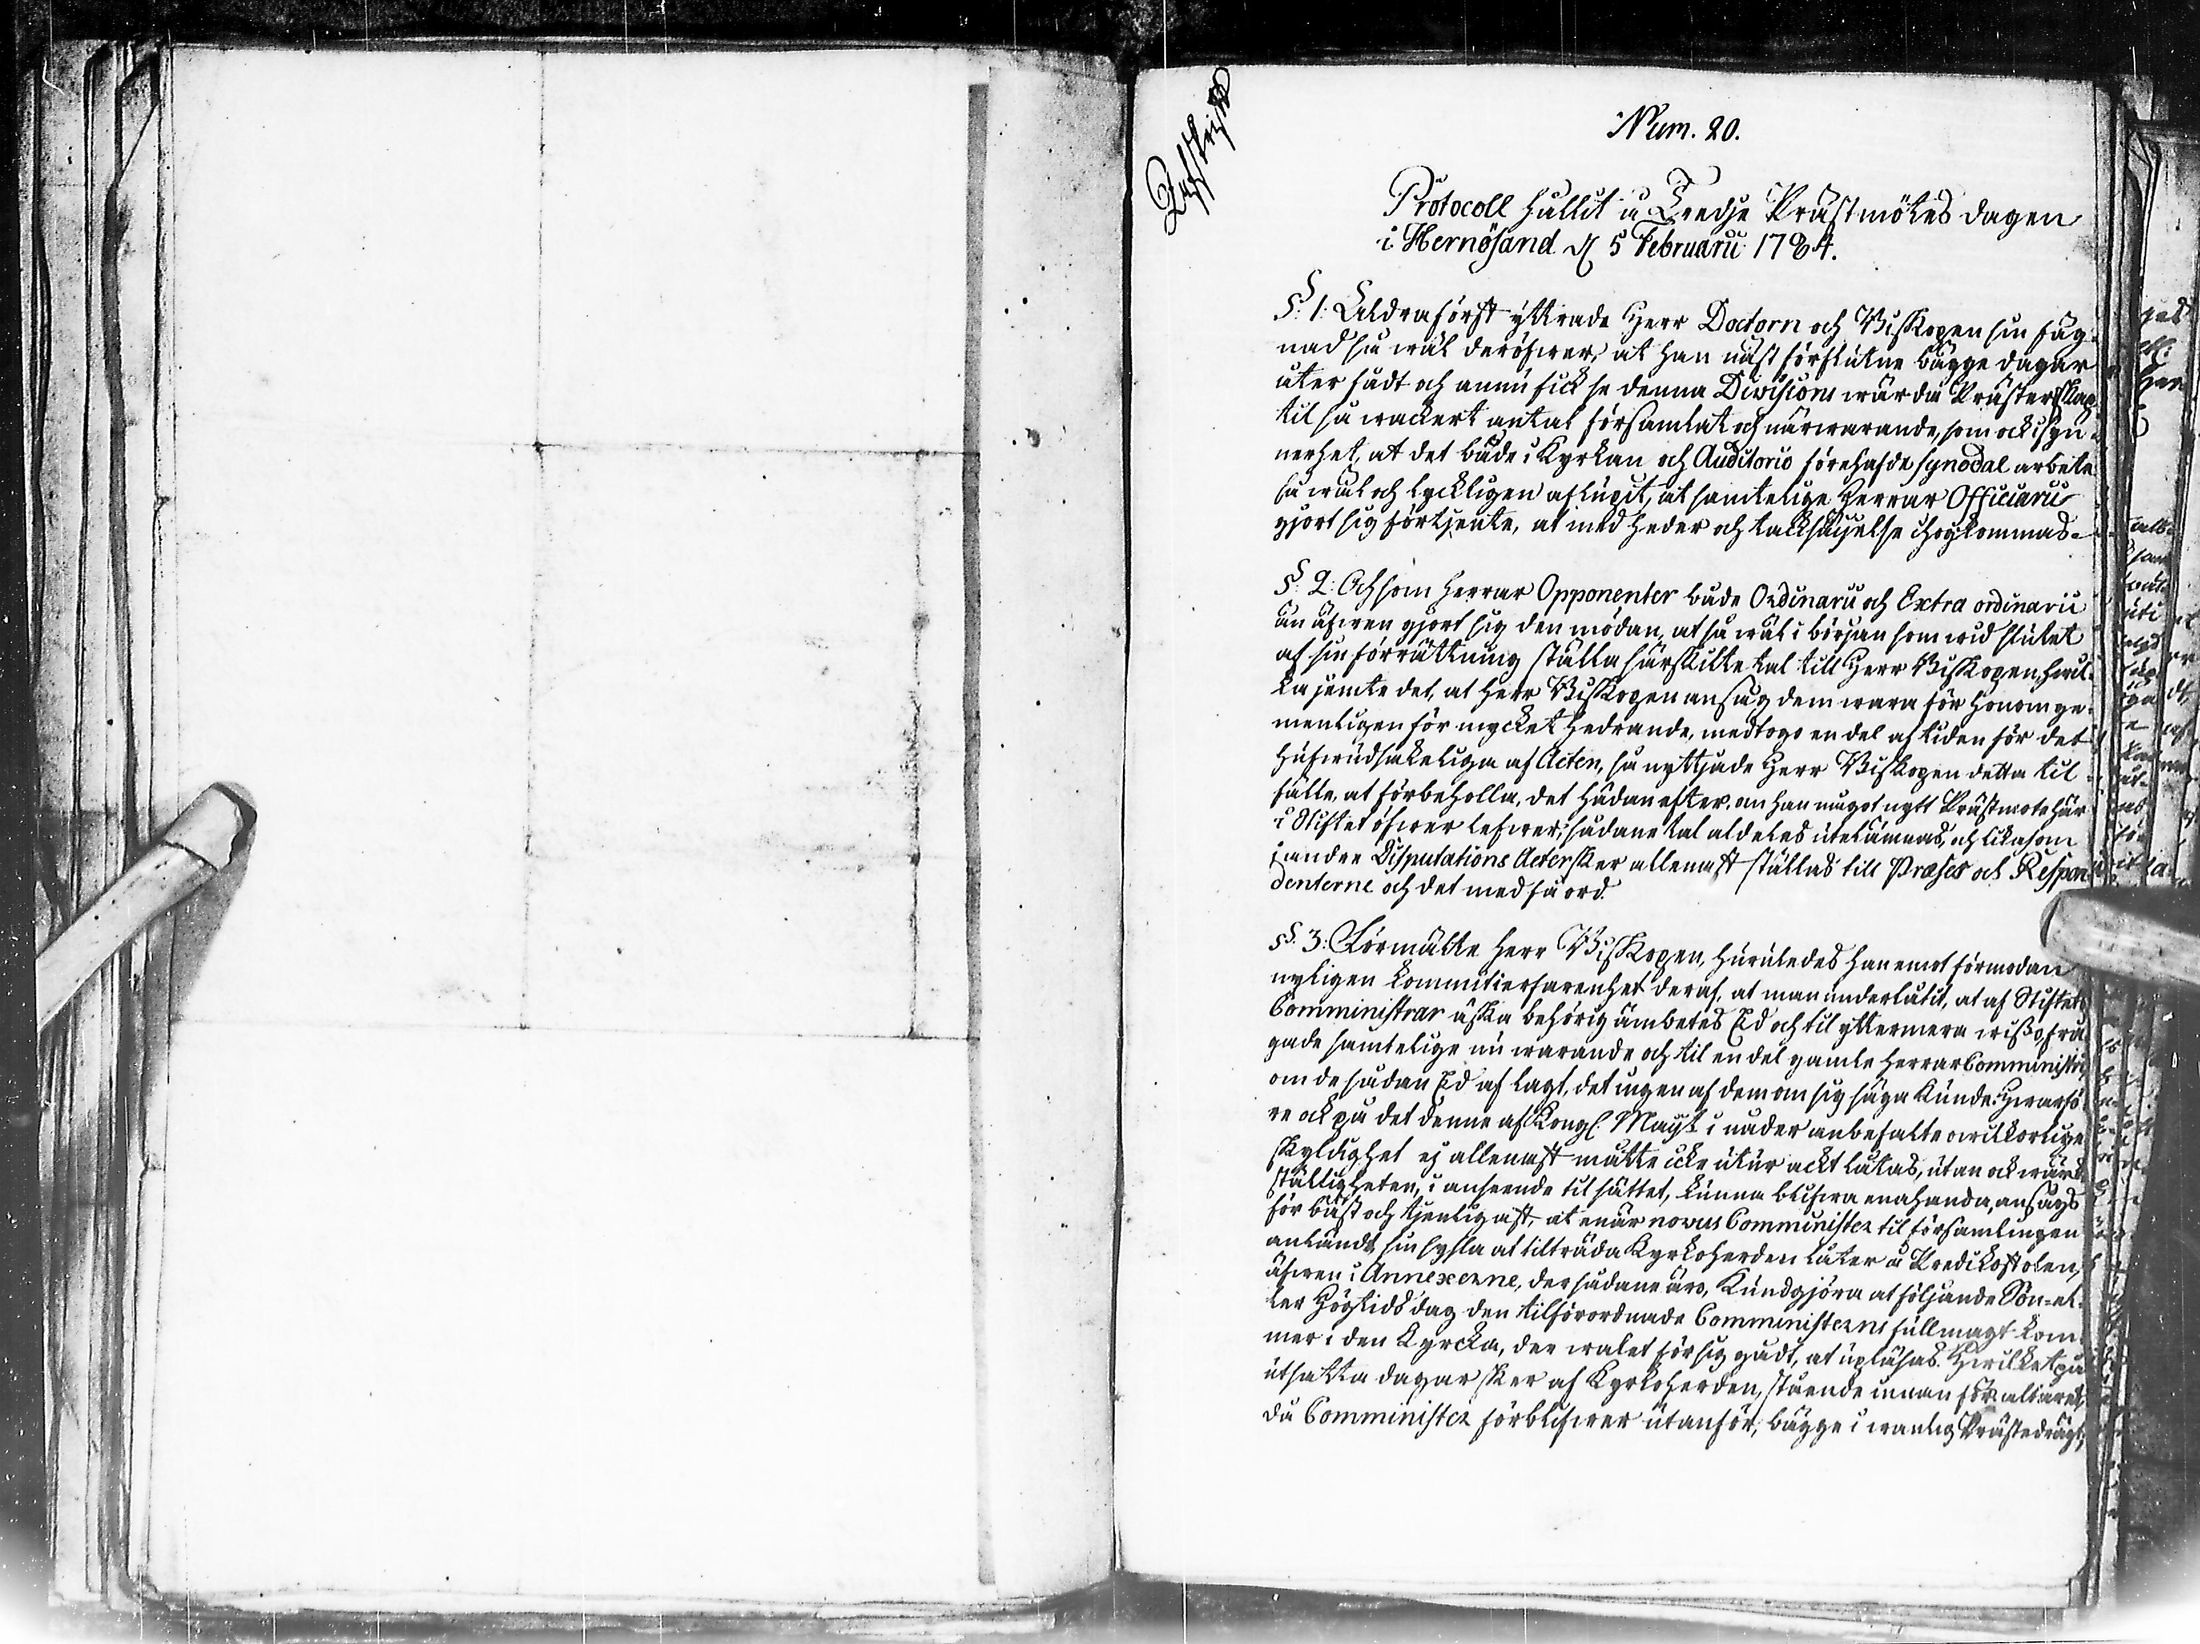 Afskrift
Num. 20.
Protocoll hållit å Tredje Prästmötes dagen
i Hernösand d. 5 Februarii 1784.
§. 1. Aldraförst yttrade Herr Doctorn och Biskopen sin fäg-
nad så wäl deröfwer, at han näst förflutne bägge dagar
åter fådt och ännu fick se denna Divisions wärda Prästerskap
til så wackert antal församlat och närwarande, som ock i syn-
nerhet, at det både i Kyrkan och Auditorio förehafde synodal arbete
så wäl och lyckligen aflupit, at samtelige Herrar Officiarii
gjort sig förtjente, at med heder och tacksäjelse ihogkommas.
§. 2. Och som Herrar Opponenter både Ordinarii och Extra ordinarii
än äfwen gjort sig den mödan, at så wäl i början som wid slutet
af sin förrättning ställa särskilte tal till Herr Biskopen, hwil-
ka jemte det, at Herr Biskopen ansåg dem wara för honom ge-
menligen för mycket hedrande, medtogo en del af tiden för det
hufwudsakeliga af Acten, så nyttjade Herr Biskopen detta til-
fälle, at förbeholla, det hädanefter, om han något nytt Prästmöte här
i Stiftet öfwer lefwer, sådane tal aldeles utelämnas, och likasom
i andre Disputations Acter sker allenast ställas till Præses och Respon-
denterne och det med få ord.
§. 3. Förmälte Herr Biskopen, huruledes han emot förmodan
nyligen kommit i erfarenhet deraf, at man underlåtit, at af Stiftets
Comministrar äska behörig ämbetes Ed och til yttermera wisso, frå-
gade samtelige nu warande och til en del gamle Herrar Comministri,
om de sådan Ed aflagt, det ingen af dem om sig säga kunde. Hwarfö-
re ock på det denne af Kongl. Majt i nåder anbefalte owilkorlige
skyldighet ej allenast måtte icke utur ackt låtas, utan ock wärk-
ställigheten, i anseende til sättet, kunna blifwa enahanda, ansågs
för bäst och tjenligast, at enär novus Comminister til församlingen
anländt sin sysla at tilträda Kyrkoherden låter å Predikostolen,
äfwen i Annexerne, der sådane äro, kundgjöra at följande Sön- el-
ler Högtids dag den tilförordnade Comministerns fullmagt kom-
mer i den Kyrcka, der walet för sig gådt, at upläsas. Hwilket på
utsatta dagar sker af Kyrkoherden, stående innan för altaret,
då Comminister förblifwer utanför, bägge i wanlig Prästedrägt,